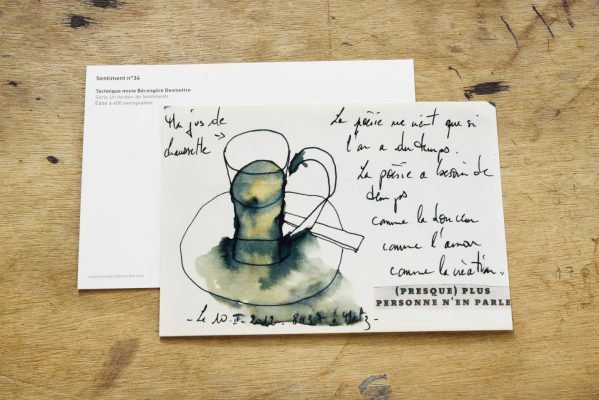 Sentiment n°34
Technique mixte Bérangère Desmettre
Série Un herbier de Sentiments
Edité à 400 exemplaires
jus de
chaussette
La poésie ne vient que si
l'on a du temps.
La poésie a besoin de
temps
comme la douceur
comme l'amour
comme la création.
(PRESQUE) PLUS
PERSONNE N'EN PARLE
- Le 10